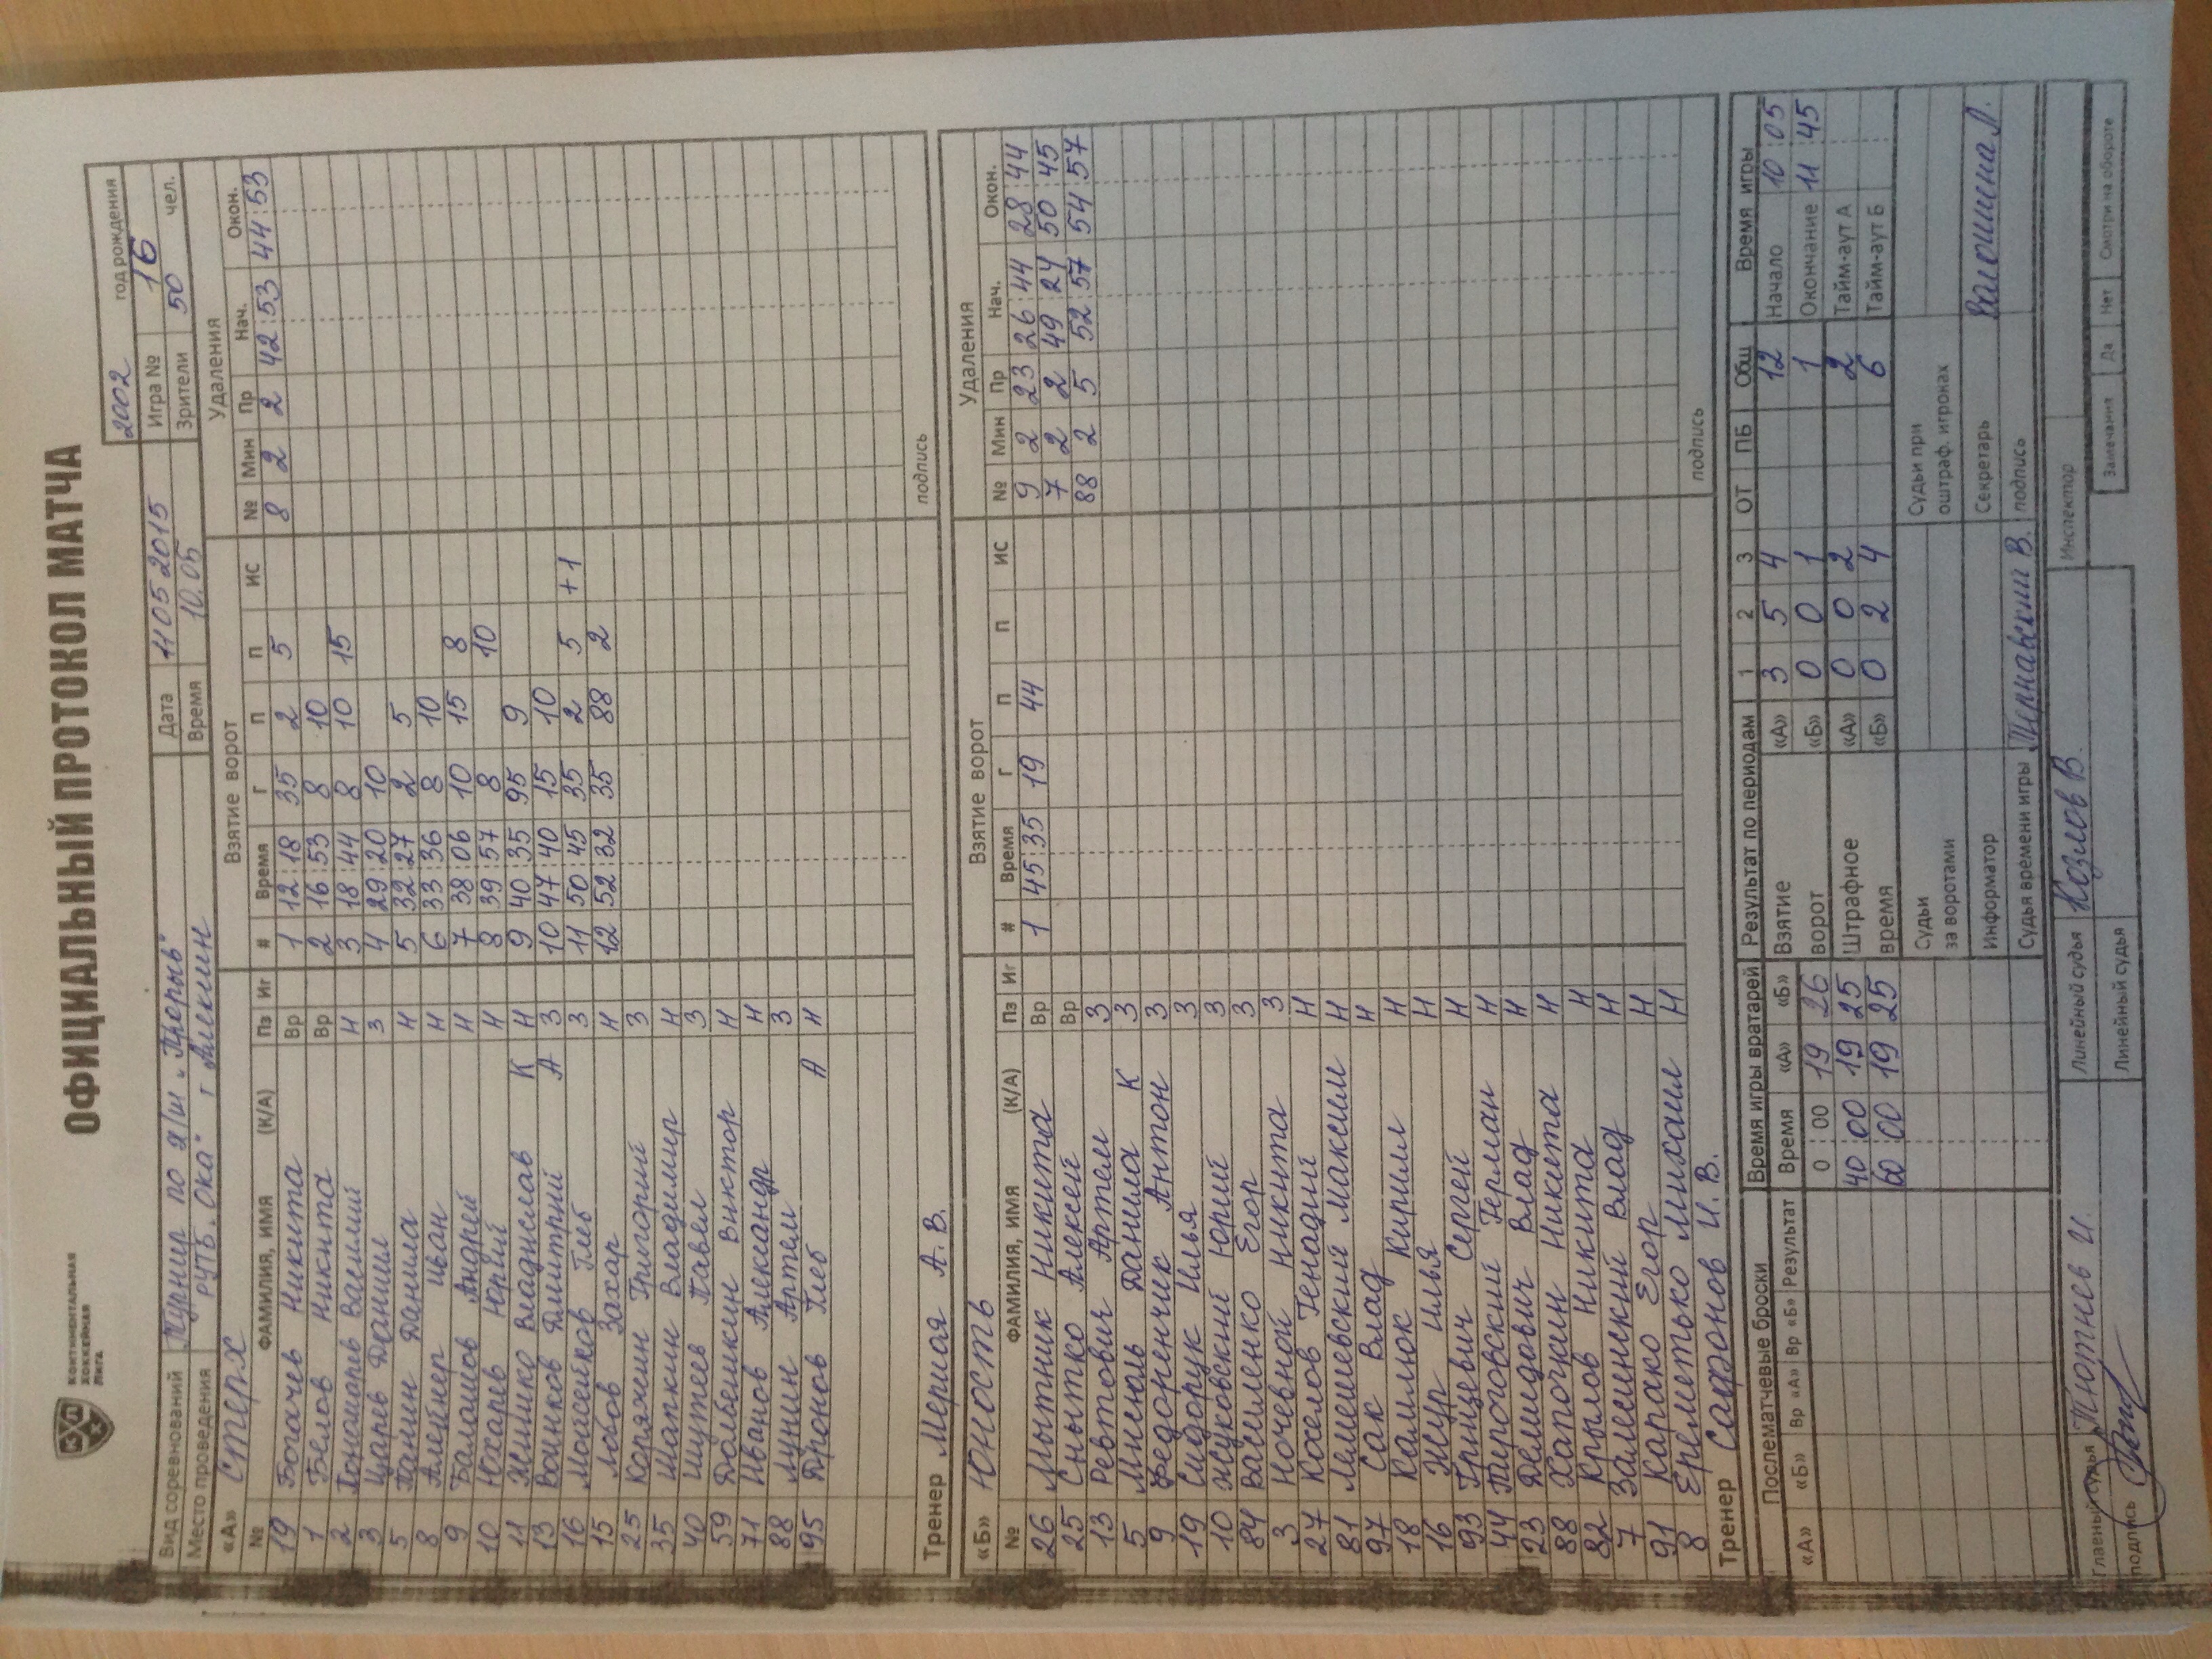 КОНТИНЕНТАЛЬНАЯ ХОККЕЙНАЯ ЛИГА
ОФИЦИАЛЬНЫЙ ПРОТОКОЛ МАТЧА
2002 год рождения
Вид соревнований Турнир по х/ш "Прорыв" Дата 11 05 2015 Игра № 16
Место проведения РУТБ "Ока" г Алексин Время 10.05 Зрители 50 чел.
«А» Стерх Взятие ворот Удаления
№ ФАМИЛИЯ, ИМЯ (К/А) Пз Иг # Время Г П П ИС № Мин Пр Нач. Окон.
19 Богачев Никита Вр 1 12:18 35 2 5 8 2 2 42:53 44:53
1 Белов Никита Вр 2 16:53 8 10
2 Василий Н 3 18:44 8 10 15
3 Царев Даниил З 4 29:20 10
5 Панин Данила Н 5 32:27 2 5
8 Иван Н 6 33:36 8 10
9 Балашов Андрей Н 7 38:06 10 15 8
10 Юхарев Юрий Н 8 39:57 8 10
11 Жинико Владислав К Н 9 40:35 95 9
13 Воинков Дмитрий А З 10 47:40 15 10
16 Мойсейков Глеб З 11 50:45 35 2 5 +1
15 Лобов Захар Н 12 52:32 35 88 2
25 Коряжкин Григорий З
35 Шапкин Владимир Н
40 Шутеев Павел З
59 Виктор Н
71 Иванов Александр Н
88 Лунин Артем З
95 Дронов Глеб А Н
Тренер А.В. подпись
«Б» Юность Взятие ворот Удаления
№ ФАМИЛИЯ, ИМЯ (К/А) Пз Иг # Время Г П П ИС № Мин Пр Нач. Окон.
26 Мытник Никита Вр 1 45:35 19 44 9 2 23 26:44 28:44
25 Снытко Алексей Вр 7 2 2 49:24 50:45
13 Ревтович Артем З 88 2 5 52:57 54:57
5 Мигноль Данила К З
9 Федоренчик Антон З
19 Сидорук Илья З
10 Жуковский Юрий З
84 Василенко Егор З
3 Ночевной Никита З
27 Кохелов Генадий Н
81 Лемешевский Максим Н
97 Сак Влад Н
18 Камлюк Кирилл Н
16 Жур Илья Н
93 Грицевич Сергей Н
44 Пироговский Герман Н
23 Демидович Влад Н
88 Хапогкин Никита Н
82 Крылов Никита Н
7 Заменский Влад Н
91 Карако Егор Н
8 Ереметько Михаил Н
Тренер Сафонов И.В. подпись
Послематчевые броски Время игры вратарей Результат по периодам 1 2 3 ОТ ПБ Общ Время игры
«А» «Б» Вр «А» Вр «Б» Результат Время «А» «Б» Взятие ворот «А» 3 5 4 12 Начало 10:05
0:00 19 26 «Б» 0 0 1 1 Окончание 11:45
40:00 19 25 Штрафное время «А» 0 0 2 2 Тайм-аут А
60:00 19 25 «Б» 0 2 4 6 Тайм-аут Б
Судьи за воротами Судьи при оштраф. игроках
Информатор Секретарь Валошина Л.
Судья времени игры В. подпись
Главный судья Тютнев И. Линейный судья Козлов В. Инспектор
подпись Линейный судья Замечания Да Нет Смотри на обороте